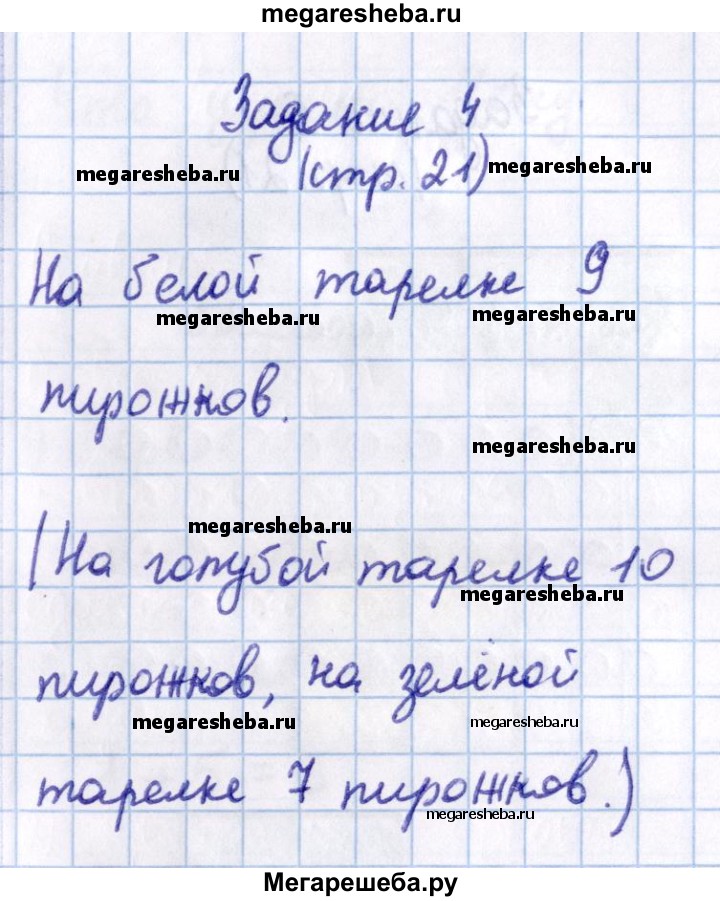 megaresheba.ru
Задание 4
megaresheba.ru (стр. 21) megaresheba.ru
На белой тарелке 9
megaresheba.ru megaresheba.ru
пирожков.
megaresheba.ru
megaresheba.ru
(На голубой тарелке 10
megaresheba.ru
пирожков, на зелёной
megaresheba.ru megaresheba.ru
тарелке 7 пирожков.)
megaresheba.ru
Мегарешеба.ру